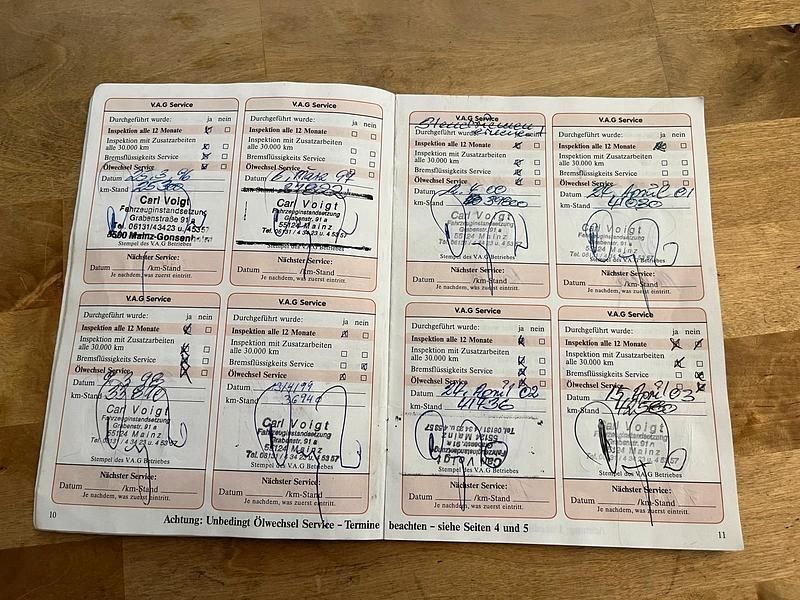 V.A.G Service
Durchgeführt wurde: ja nein
Inspektion alle 12 Monate
Inspektion mit Zusatzarbeiten
alle 30.000 km
Bremsflüssigkeits Service
Ölwechsel Service
Datum 25.3.96
km-Stand 25300
Carl Voigt
Fahrzeuginstandsetzung
Grabenstraße 91 a
Tel. 06131/43423 u. 453
6500 Mainz-Gonsenheim
Stempel des V.A.G Betriebes
Nächster Service:
Datum /km-Stand
Je nachdem, was zuerst eintritt.
V.A.G Service
Durchgeführt wurde: ja nein
Inspektion alle 12 Monate
Inspektion mit Zusatzarbeiten
alle 30.000 km
Bremsflüssigkeits Service
Ölwechsel Service
Datum März 97
km-Stand
Carl Voigt
Fahrzeuginstandsetzung
Grabenstr. 91 a
55124 Mainz
Tel. 06131/4 34 23 u. 4 53 57
Stempel des V.A.G Betriebes
Nächster Service:
Datum /km-Stand
Je nachdem, was zuerst eintritt.
V.A.G Service
Durchgeführt wurde: ja nein
Inspektion alle 12 Monate
Inspektion mit Zusatzarbeiten
alle 30.000 km
Bremsflüssigkeits Service
Ölwechsel Service
Datum 3.98
km-Stand
Carl Voigt
Fahrzeuginstandsetzung
Grabenstr. 91 a
55124 Mainz
Tel. 06131/4 34 23 u. 4 53 57
Stempel des V.A.G Betriebes
Nächster Service:
Datum /km-Stand
Je nachdem, was zuerst eintritt.
V.A.G Service
Durchgeführt wurde: ja nein
Inspektion alle 12 Monate
Inspektion mit Zusatzarbeiten
alle 30.000 km
Bremsflüssigkeits Service
Ölwechsel Service
Datum
km-Stand 36940
Carl Voigt
Fahrzeuginstandsetzung
Grabenstr. 91 a
55124 Mainz
Tel. 06131/4 34 23 u. 4 53 57
Stempel des V.A.G Betriebes
Nächster Service:
Datum /km-Stand
Je nachdem, was zuerst eintritt.
10
V.A.G Service
Durchgeführt wurde: ja nein
Inspektion alle 12 Monate
Inspektion mit Zusatzarbeiten
alle 30.000 km
Bremsflüssigkeits Service
Ölwechsel Service
Datum
km-Stand
Carl Voigt
Fahrzeuginstandsetzung
Grabenstr. 91 a
55124 Mainz
Stempel des V.A.G Betriebes
Nächster Service:
Datum /km-Stand
Je nachdem, was zuerst eintritt.
V.A.G Service
Durchgeführt wurde: ja nein
Inspektion alle 12 Monate
Inspektion mit Zusatzarbeiten
alle 30.000 km
Bremsflüssigkeits Service
Ölwechsel Service
Datum 24. April 01
km-Stand
Carl Voigt
Fahrzeuginstandsetzung
Grabenstr. 91 a
55124 Mainz
Stempel des V.A.G Betriebes
Nächster Service:
Datum /km-Stand
Je nachdem, was zuerst eintritt.
V.A.G Service
Durchgeführt wurde: ja nein
Inspektion alle 12 Monate
Inspektion mit Zusatzarbeiten
alle 30.000 km
Bremsflüssigkeits Service
Ölwechsel Service
Datum 24. April 02
km-Stand 41436
Tel. 06131/4 34 23 u. 4 53 57
55124 Mainz
Grabenstr. 91 a
Fahrzeuginstandsetzung
Carl Voigt
Stempel des V.A.G Betriebes
Nächster Service:
Datum /km-Stand
Je nachdem, was zuerst eintritt.
V.A.G Service
Durchgeführt wurde: ja nein
Inspektion alle 12 Monate
Inspektion mit Zusatzarbeiten
alle 30.000 km
Bremsflüssigkeits Service
Ölwechsel Service
Datum 15. April 03
km-Stand
Carl Voigt
Fahrzeuginstandsetzung
Grabenstr. 91 a
55124 Mainz
Stempel des V.A.G Betriebes
Nächster Service:
Datum /km-Stand
Je nachdem, was zuerst eintritt.
11
Achtung: Unbedingt Ölwechsel Service – Termine beachten – siehe Seiten 4 und 5